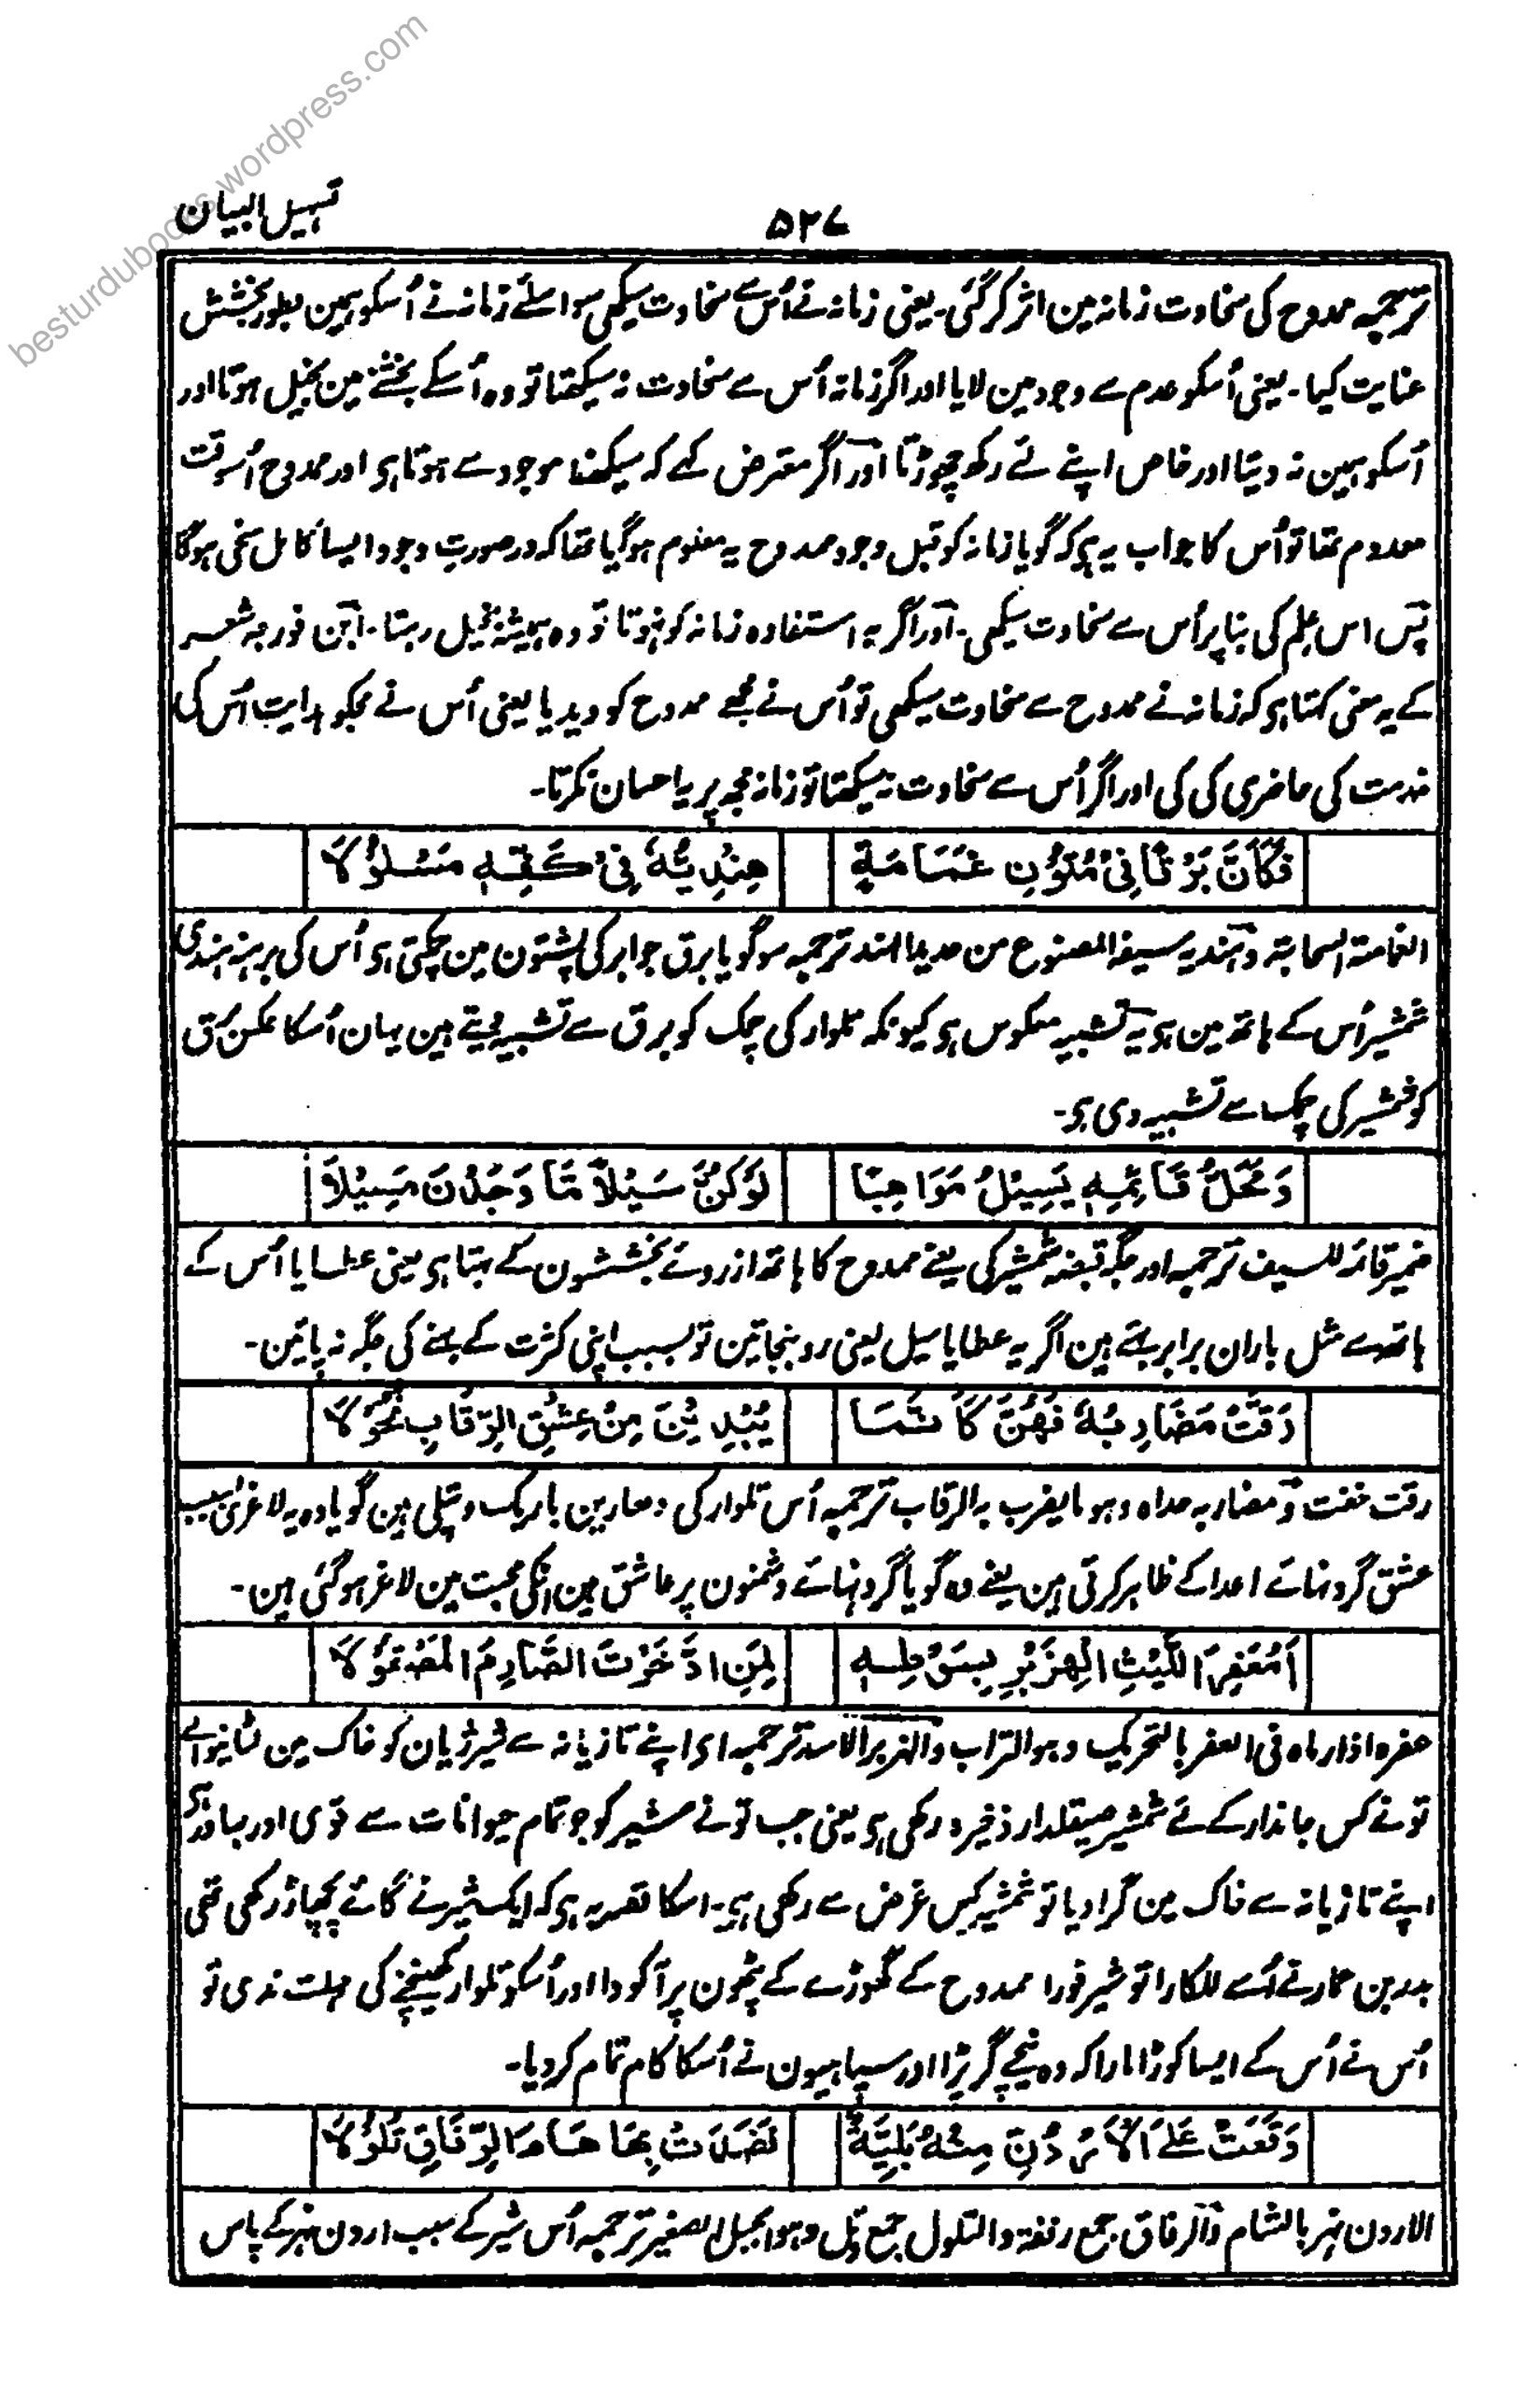 besturdubooks.wordpress.com
تسہیل البیان
۵۲۷
ترجمہ ممدوح کی سخاوت زمانہ مین اثر کر گئی۔ یعنی زمانہ نے اُس سے سخاوت سیکھی سو اسلئے زمانہ نے اُسکو ہمین بطور بخشش
عنایت کیا۔ یعنی اُسکو عدم سے وجود مین لایا اور اگر زمانہ اُس سے سخاوت نہ سیکھتا تو وہ اُسکے بخشنے مین بخیل ہوتا اور
اُسکو ہمین نہ دیتا اور خاص اپنے لئے رکھ چھوڑتا اور اگر معترض کہے کہ سیکھنا موجود سے ہوتا ہی اور ممدوح اُسوقت
معدوم تھا تو اُس کا جواب یہ ہی کہ گویا زمانہ کو قبل وجود ممدوح یہ معلوم ہو گیا تھا کہ در صورت وجود ایسا کامل سخی ہوگا
پس اس علم کی بنا پر اُس سے سخاوت سیکھی۔ اور اگر یہ استفادہ زمانہ کو نہوتا تو وہ ہمیشہ بخیل رہتا۔ ابن فورجہ شعر
کے یہ معنی کہتا ہی کہ زمانہ نے ممدوح سے سخاوت سیکھی تو اُس نے مجھے ممدوح کو دیدیا یعنی اُس نے مجکو ہدایت اُس کی
خدمت کی حاضری کی کی اور اگر اُس سے سخاوت نہ سیکھتا تو زمانہ مجھ پر یہ احسان نکرتا۔
فَكَأَنَّ بَرْقًا فِیْ مُتُوْنِ غَمَامَةٍ هِنْدِيُّهٗ فِیْ كَفِّهٖ مَسْلُوْلَا
الغمامۃ السحابۃ و ہندیہ سیفہ المصنوع من حدید الہند ترجمہ سو گویا برق جو ابر کی پشتون مین چمکتی ہی اُس کی برہنہ ہندی
شمشیر اُس کے ہاتھ مین ہی یہ تشبیہ معکوس ہی کیونکہ تلوار کی چمک کو برق سے تشبیہ دیتے ہین یہان اُسکا عکس برق
کو شمشیر کی چمک سے تشبیہ دی ہی۔
وَمَحَلُّ قَائِمِهٖ يَسِيْلُ مَوَاهِبًا لَوْ كُنَّ سَيْلًا مَّا وَجَدْنَ مَسِيْلًا
ضمیر قائمہ للسیف ترجمہ اور جگہ قبضہ شمشیر کی یعنے ممدوح کا ہاتھ از روئے بخششون کے بہتا ہی یعنی عطایا اُس کے
ہاتھ سے مثل باران برابر بہتے ہین اگر یہ عطایا سیل یعنی رو بنجاتین تو بسبب اپنی کثرت کے بہنے کی جگہ نہ پاتین۔
رَقَّتْ مَضَارِبُهٗ فَهُنَّ كَأَنَّمَا يُبْدِيْنَ مِنْ عِشْقِ الرِّقَابِ نُحُوْلَا
رقت خفت و مضاربہ حداہ وہو ما یضرب بہ الرقاب ترجمہ اُس تلوار کی دھارین باریک و پتلی ہین گویا وہ یہ لاغری بسبب
عشق گردنہائے اعدا کے ظاہر کرتی ہین یعنے وہ گویا گردنہائے دشمنون پر عاشق ہین انکی محبت مین لاغر ہو گئی ہین۔
اَمُعَفِّرَ اللَّيْثِ الْهِزَبْرِ بِسَوْطِهٖ لِمَنِ ادَّخَرْتَ الصَّارِمَ الْمَصْقُوْلَا
عفرہ اذا رماہ فی العفر بالتحریک وہو التراب والہزبر الاسد ترجمہ ای اپنے تازیانہ سے شیر ژیان کو خاک مین لٹانیوالے
تو نے کس جاندار کے لئے شمشیر صیقلدار ذخیرہ رکھی ہی یعنی جب تو نے شیر کو جو تمام حیوانات سے قوی اور بہادر ہی
اپنے تازیانہ سے خاک مین گرا دیا تو شمشیر کس غرض سے رکھی ہی۔ اسکا قصہ یہ ہی کہ ایک شیر نے گائے پچھاڑ رکھی تھی
بدر بن عمار نے اُسے للکارا تو شیر فورا ممدوح کے گھوڑے کے پٹھون پر آ کودا اور اُسکو تلوار کھینچنے کی مہلت نہ دی تو
اُس نے اُس کے ایسا کوڑا مارا کہ وہ نیچے گر پڑا اور سپاہیون نے اُسکا کام تمام کر دیا۔
وَقَعَتْ عَلَى الْاُرْدُنِّ مِنْهُ بَلِيَّةٌ نُضِدَتْ بِهَا هَامُ الرِّفَاقِ تُلُوْلَا
الاردن نہر بالشام والرفاق جمع رفقۃ والتلول جمع تل وہو الجبل الصغیر ترجمہ اُس شیر کے سبب اردن نہر کے پاس